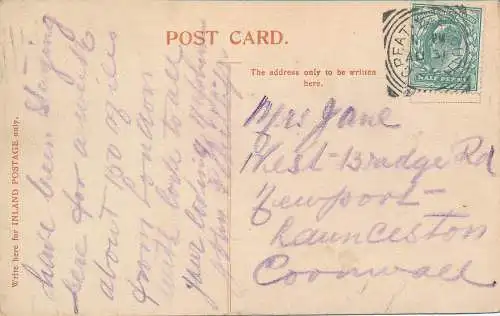 POST CARD.
The address only to be written
here.
Write here for INLAND POSTAGE only.
have been staying
here for a week
about 130 miles
from London
with love to all
your loving
HALF PENNY
Mrs Jane
West-Bradge Rd
Newport-
Launceston
Coornwall